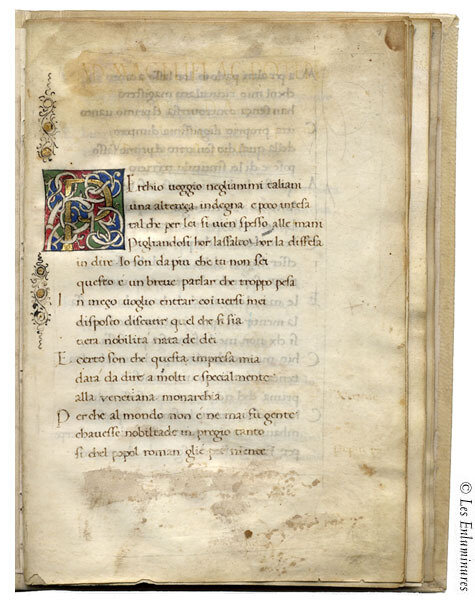 PErchio ueggio neglianimi taliani
una alterça indegna e poco intesa
tal che per lei si uien spesso alle mani
Pigliandosi hor lassalto hor la diffesa
in dire Io son da piu che tu non sei
questo e un breue parlar che troppo pesa
In meço uoglio entrar coi uersi mei
disposto discutir quel che si sia
uera nobilita nata de dei
E certo son che questa impresa mia
dara da dire a molti e specialmente
alla venetiana monarchia
Perche al mondo non e ne mai fu gente
chauesse nobiltade in pregio tanto
si chel popol roman glie per niente
© Les Enluminures